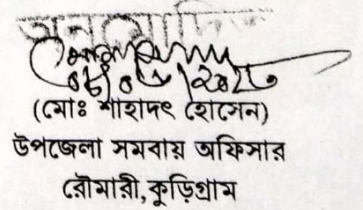 অনুমোদিত
(মোঃ শাহাদৎ হোসেন)
উপজেলা সমবায় অফিসার
রৌমারী,কুড়িগ্রাম